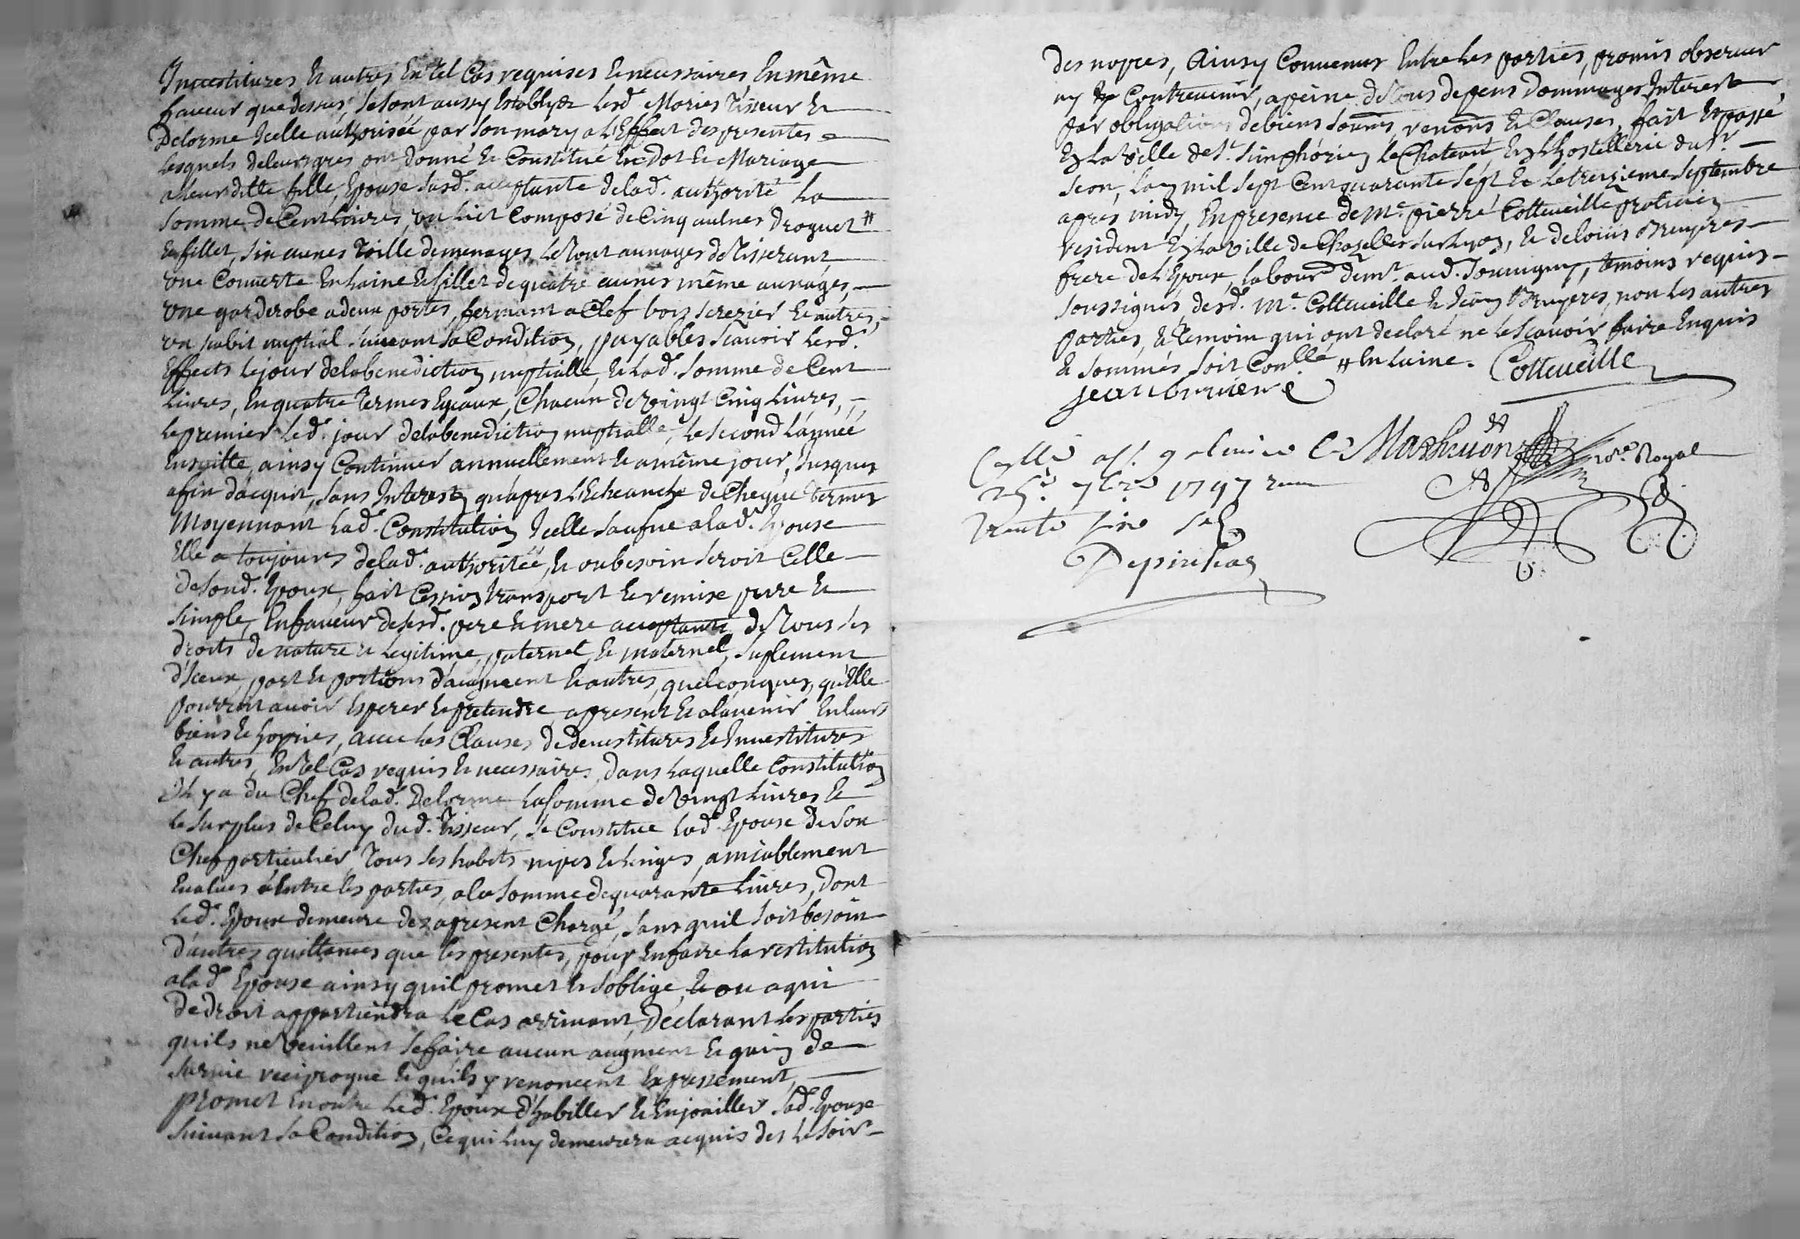 Investitures & autres En tel Cas requises & necessaires En même
faveur que dessus, se sont aussy Establys Lesd. Maries Tisseur &
Delorme Icelle authorisée par son mary a l'Effect des presentes
Lesquels de leurs gres ont donné & Constitué En Dot & Mariage
a leurditte fille, Epouse susd. acceptante de lad. authorité La
somme de Cent Livres, un Lict Composé de Cinq aulnes Droguet #
En fillet, six aunes Toille de menages, Le tout aunages de Tisserant
une Couverte En Laine & fillet de quatre aunes même aunages,
une garderobe a deux portes, fermant a Clef bois serezier & autres,
un habit nuptial suivant sa Condition, payables scavoir Lesd.
Effects le jour de la benediction nuptialle, & Lad. somme de Cent
Livres, En quatre termes Egeaux, Chacun de vingt Cinq Livres,
Le premier Led. jour de la benediction nuptialle, le second L'année
Ensuitte, ainsy Continuer annuellement & a même jour, Jusques
a fin d'acquit, sans Interest qu'apres l'Echeanche de Cheque termes
Moyennant Lad. Constitution Icelle saufue a lad. Epouse
Elle a toujours de lad. authoritée, & ou besoin seroit Celle
de sond. Epoux, fait Cession transport & remise pure &
simple, En faveur de sesd. pere & mere acceptants De Tous ses
droits de nature & legitime, paternel, & maternel, suplement
d'Iceux, part & portions d'augment & autres, quelconques, qu'Elle
pourroit avoir Esperer & pretendre a present & a l'avenir En leurs
biens & hoyries, avec les Clauses de devestitures & Investitures
& autres, En tel Cas requis & necessaires, Dans Laquelle Constitution
Il y a du Chef de lad. Delorme La somme de Vingt Livres &
le surplus de Celuy dud. Tisseur, se Constitue Lad. Epouse de son
Chef particulier Tous ses habits nipes & Linges, amiablement
Evalues Entre les parties, a la somme de quarante Livres, Dont
Led. Epoux demeure dez a present Chargé, sans quil soit besoin
D'autres quittances que les presentes, pour En faire La restitution
a lad. Epouse ainsy quil promet & s'oblige, & ou a qui
De droit appartiendra le Cas arrivant, Declarant les parties
quils ne Veuillent se faire aucun augment & gain de
survie reciproque & quils y renoncent Expressement,
promet En outre Led. Epoux d'habiller & Enjoailler sad. Epouse
suivant sa Condition, Ce qui Luy demeurera acquis des le soir
Des nopces, Ainsy Convenus Entre Les parties, promis observer
ny Contrevenir, a peine de tous depens Dommages Interest
par obligations de biens soumis, renons & Clauses, fait & passé
En La Ville de St. Simphorien Le Chateau En L'hostellerie du Sr.
Jeon, L'an mil sept Cent quarante sept & le treizieme septembre
apres midy, En presence de Me. pierre Cotteueille praticien
resident En La Ville de Chazelles sur Lyon, & de louis Bruyeres
frere de l'Epoux, Laboureur demt. aud. , temoins requis
soussignés, lesd. Me. Cotteueille & Jean Bruyeres, non les autres
parties, & temoin qui ont declaré ne le scavoir faire Enquis
& sommés, soit Conllé # En Laine. Cotteueille
jean bruiere
Cellé a St galmier Ce Mathevon Nore. Royal
25e 7bre 1747 reçu
trente six sols
Depinhac